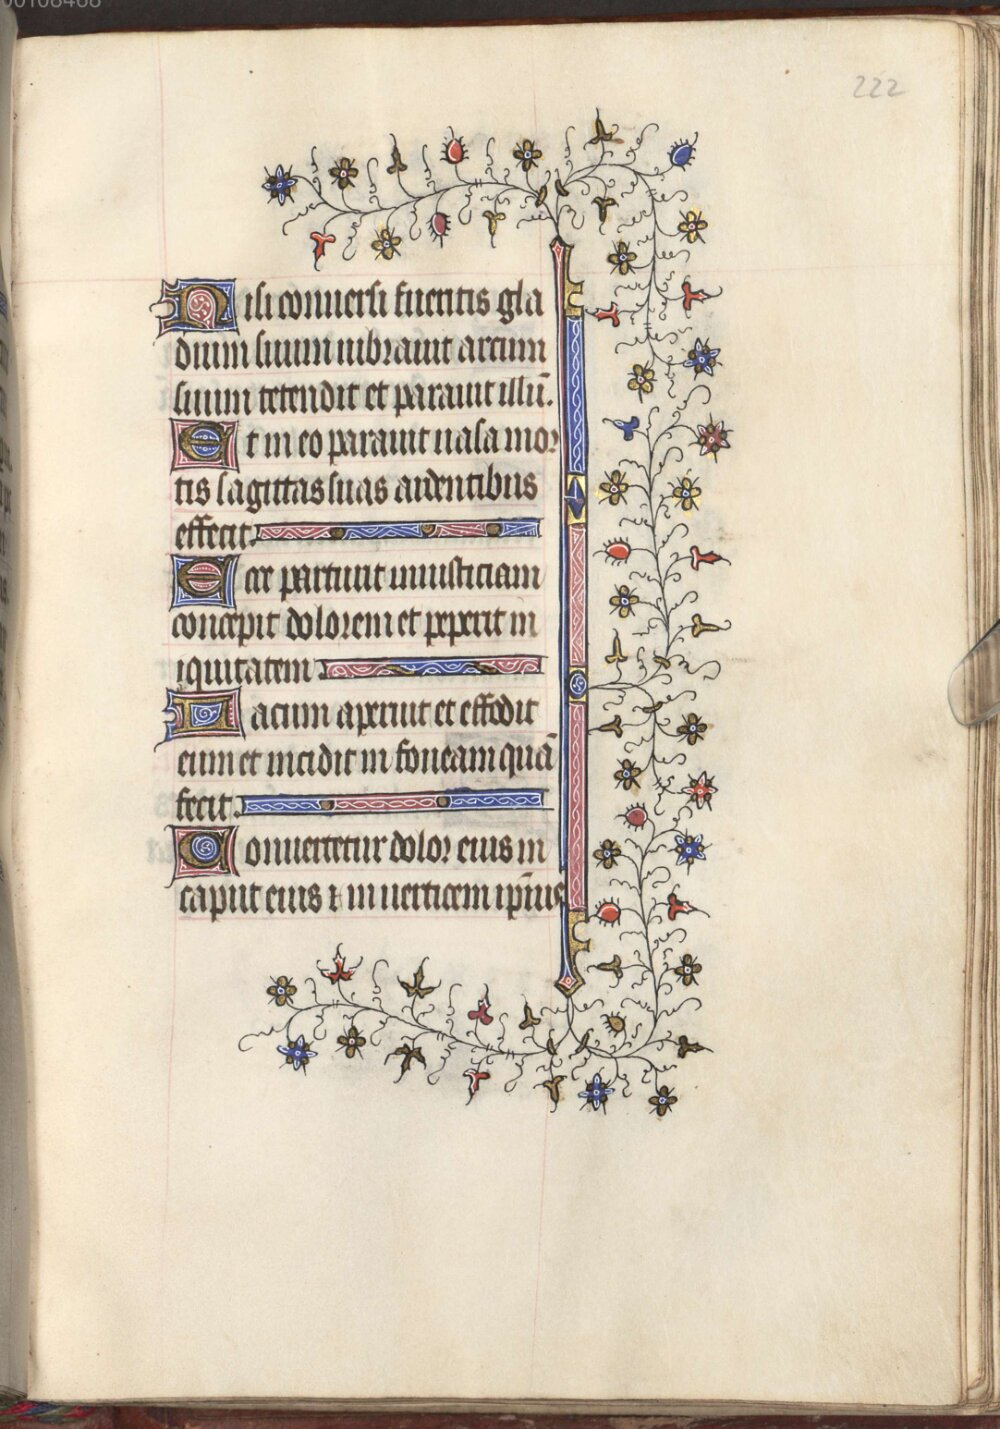 00108468
222
Nisi conuersi fueritis gla
dium suum uibrauit arcum
suum tetendit et parauit illū.
Et in eo parauit uasa mor
tis sagittas suas ardentibus
effecit.
Ecce parturit iniusticiam
concepit dolorem et peperit in
iquitatem
Lacum aperuit et effodit
eum et incidit in foueam quā
fecit.
Conuertetur dolor eius in
caput eius ⁊ in uerticem ip̄ius